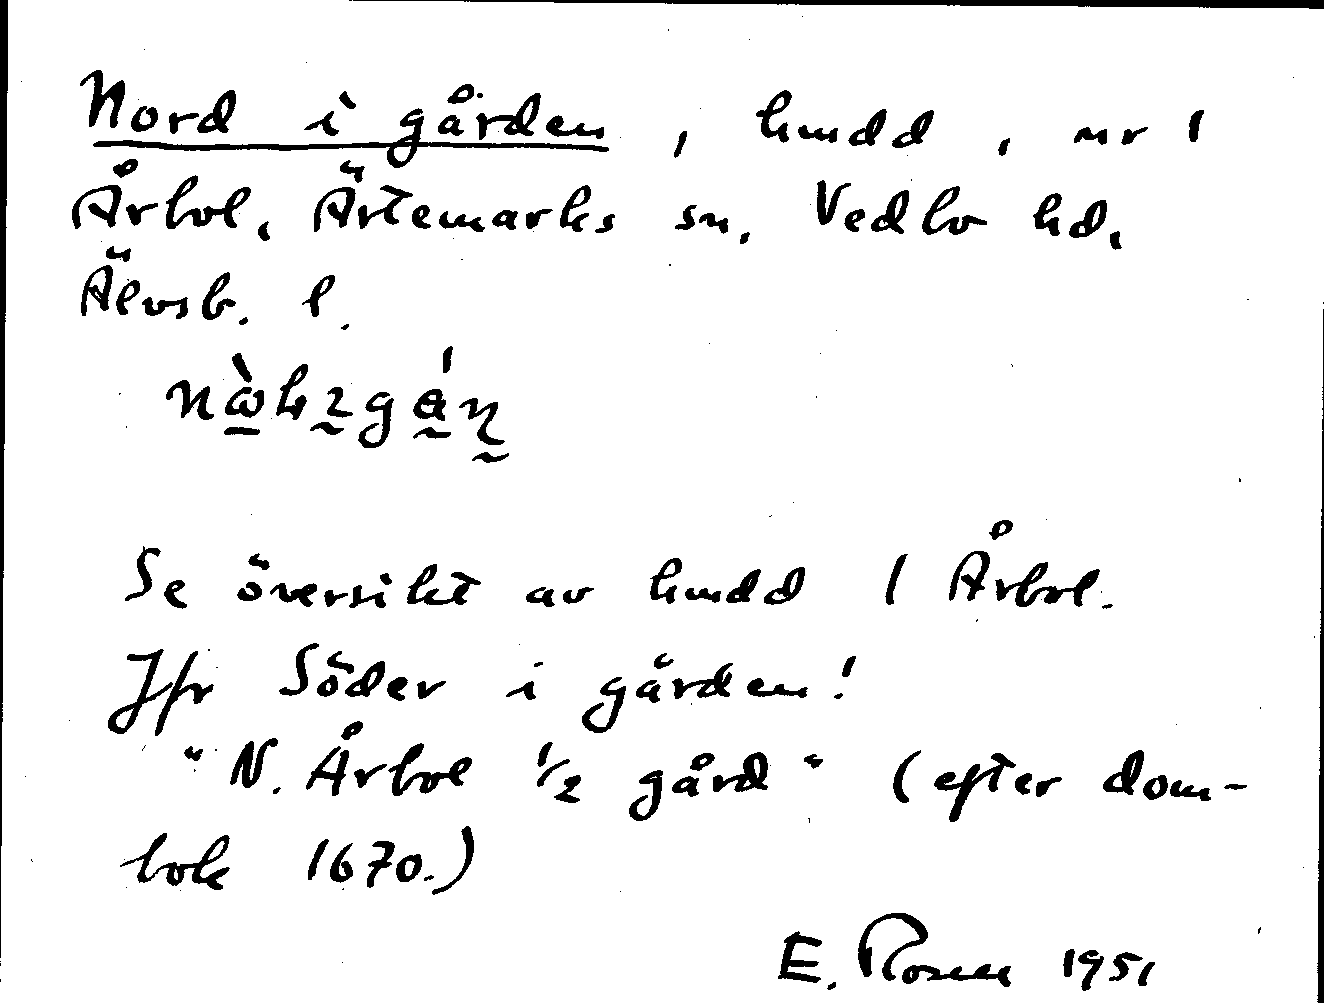 Nord i gården, hmdd, nr 1
Årbol, Ärtemarks sn. Vedbo hd,
Älvsb. l.
Se översikt av hmdd 1 Årbol.
Jfr Söder i gården!
"N. Årbol 1/2 gård" (efter dom-
bok 1670.)
E. Rosen 1951